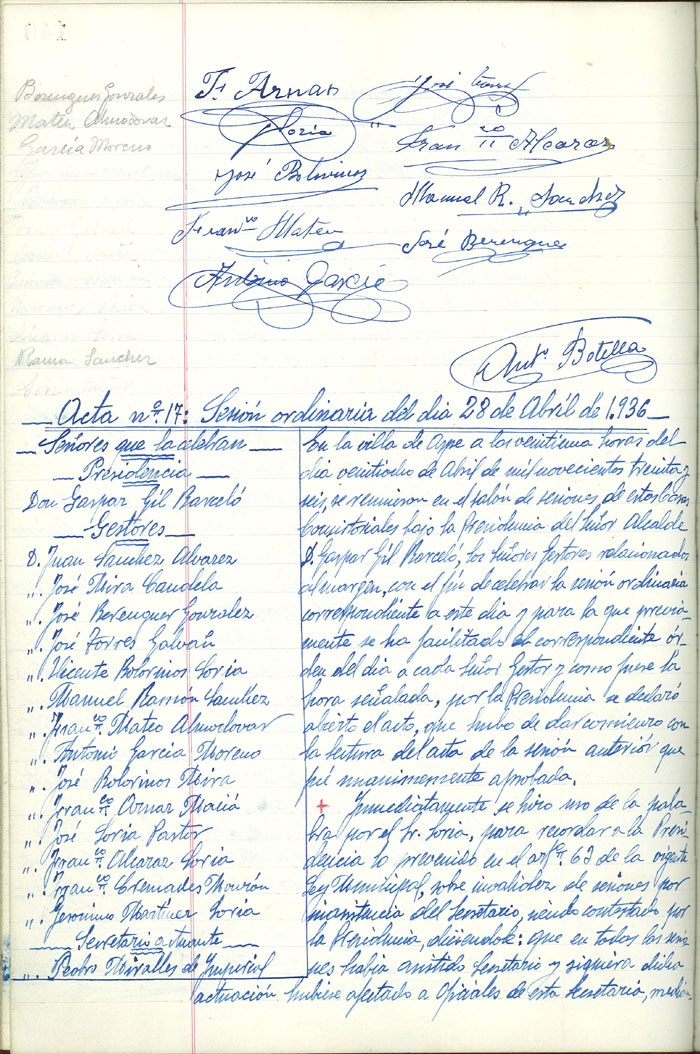 Berenguer Gonzales
Mateu Almodovar
Garcia Moreno
Ramon Sanchez
Fº Arnar
José
Soria
Franco Alcaraz
José Bolorinos
Manuel R. Sanchez
Franco Mateu
José Berenguer
Antonio García
Antº Botella
Acta nº 17: Sesión ordinaria del dia 28 de Abril de 1.936
Señores que la celebran
Presidencia
Don Gaspar Gil Barceló
Gestores
D. Juan Sanchez Alvarez
". José Mira Candela
". José Berenguer Gonzalez
". José Torres Galvañ
". Vicente Bolorinos Soria
". Manuel Ramón Sanchez
". Franco Mateo Almodovar
". Antonio Garcia Moreno
". José Bolorinos Mira
". Franco Aznar Maciá
". José Soria Pastor
". Franco Alcaraz Soria
". Franco Cremades Monzón
". Jeronimo Martinez Soria
Secretario actuante
". Pedro Miralles de Imperial
En la villa de Aspe a las veintiuna horas del
dia veintiocho de Abril de mil novecientos treinta y
seis, se reunieron en el salón de sesiones de estas Casas
Consistoriales bajo la Presidencia del Señor Alcalde
D. Gaspar Gil Barceló, los Señores Gestores relacionados
al margen, con el fin de celebrar la sesión ordinaria
correspondiente a este dia y para la que previa-
mente se ha facilitado el correspondiente ór-
den del dia a cada Señor Gestor y como fuese la
hora señalada, por la Presidencia se declaró
abierto el acto, que hubo de dar comienzo con
la lectura del acta de la sesión anteriór que
fué unanimemente aprobada.
+ Inmediatamente se hizo uso de la pala-
bra por el Sr. Soria, para recordar a la Presi-
dencia lo prevenido en el artº 62 de la vigente
Ley Municipal, sobre invalidez de sesiones por
inasistencia del Secretario, siendo contestado por
la Presidencia, diciendole: que en todas las sesio-
nes habia asistido Secretario y siquiera dicha
actuación hubiese afectado a Oficiales de esta Secretaria, median-